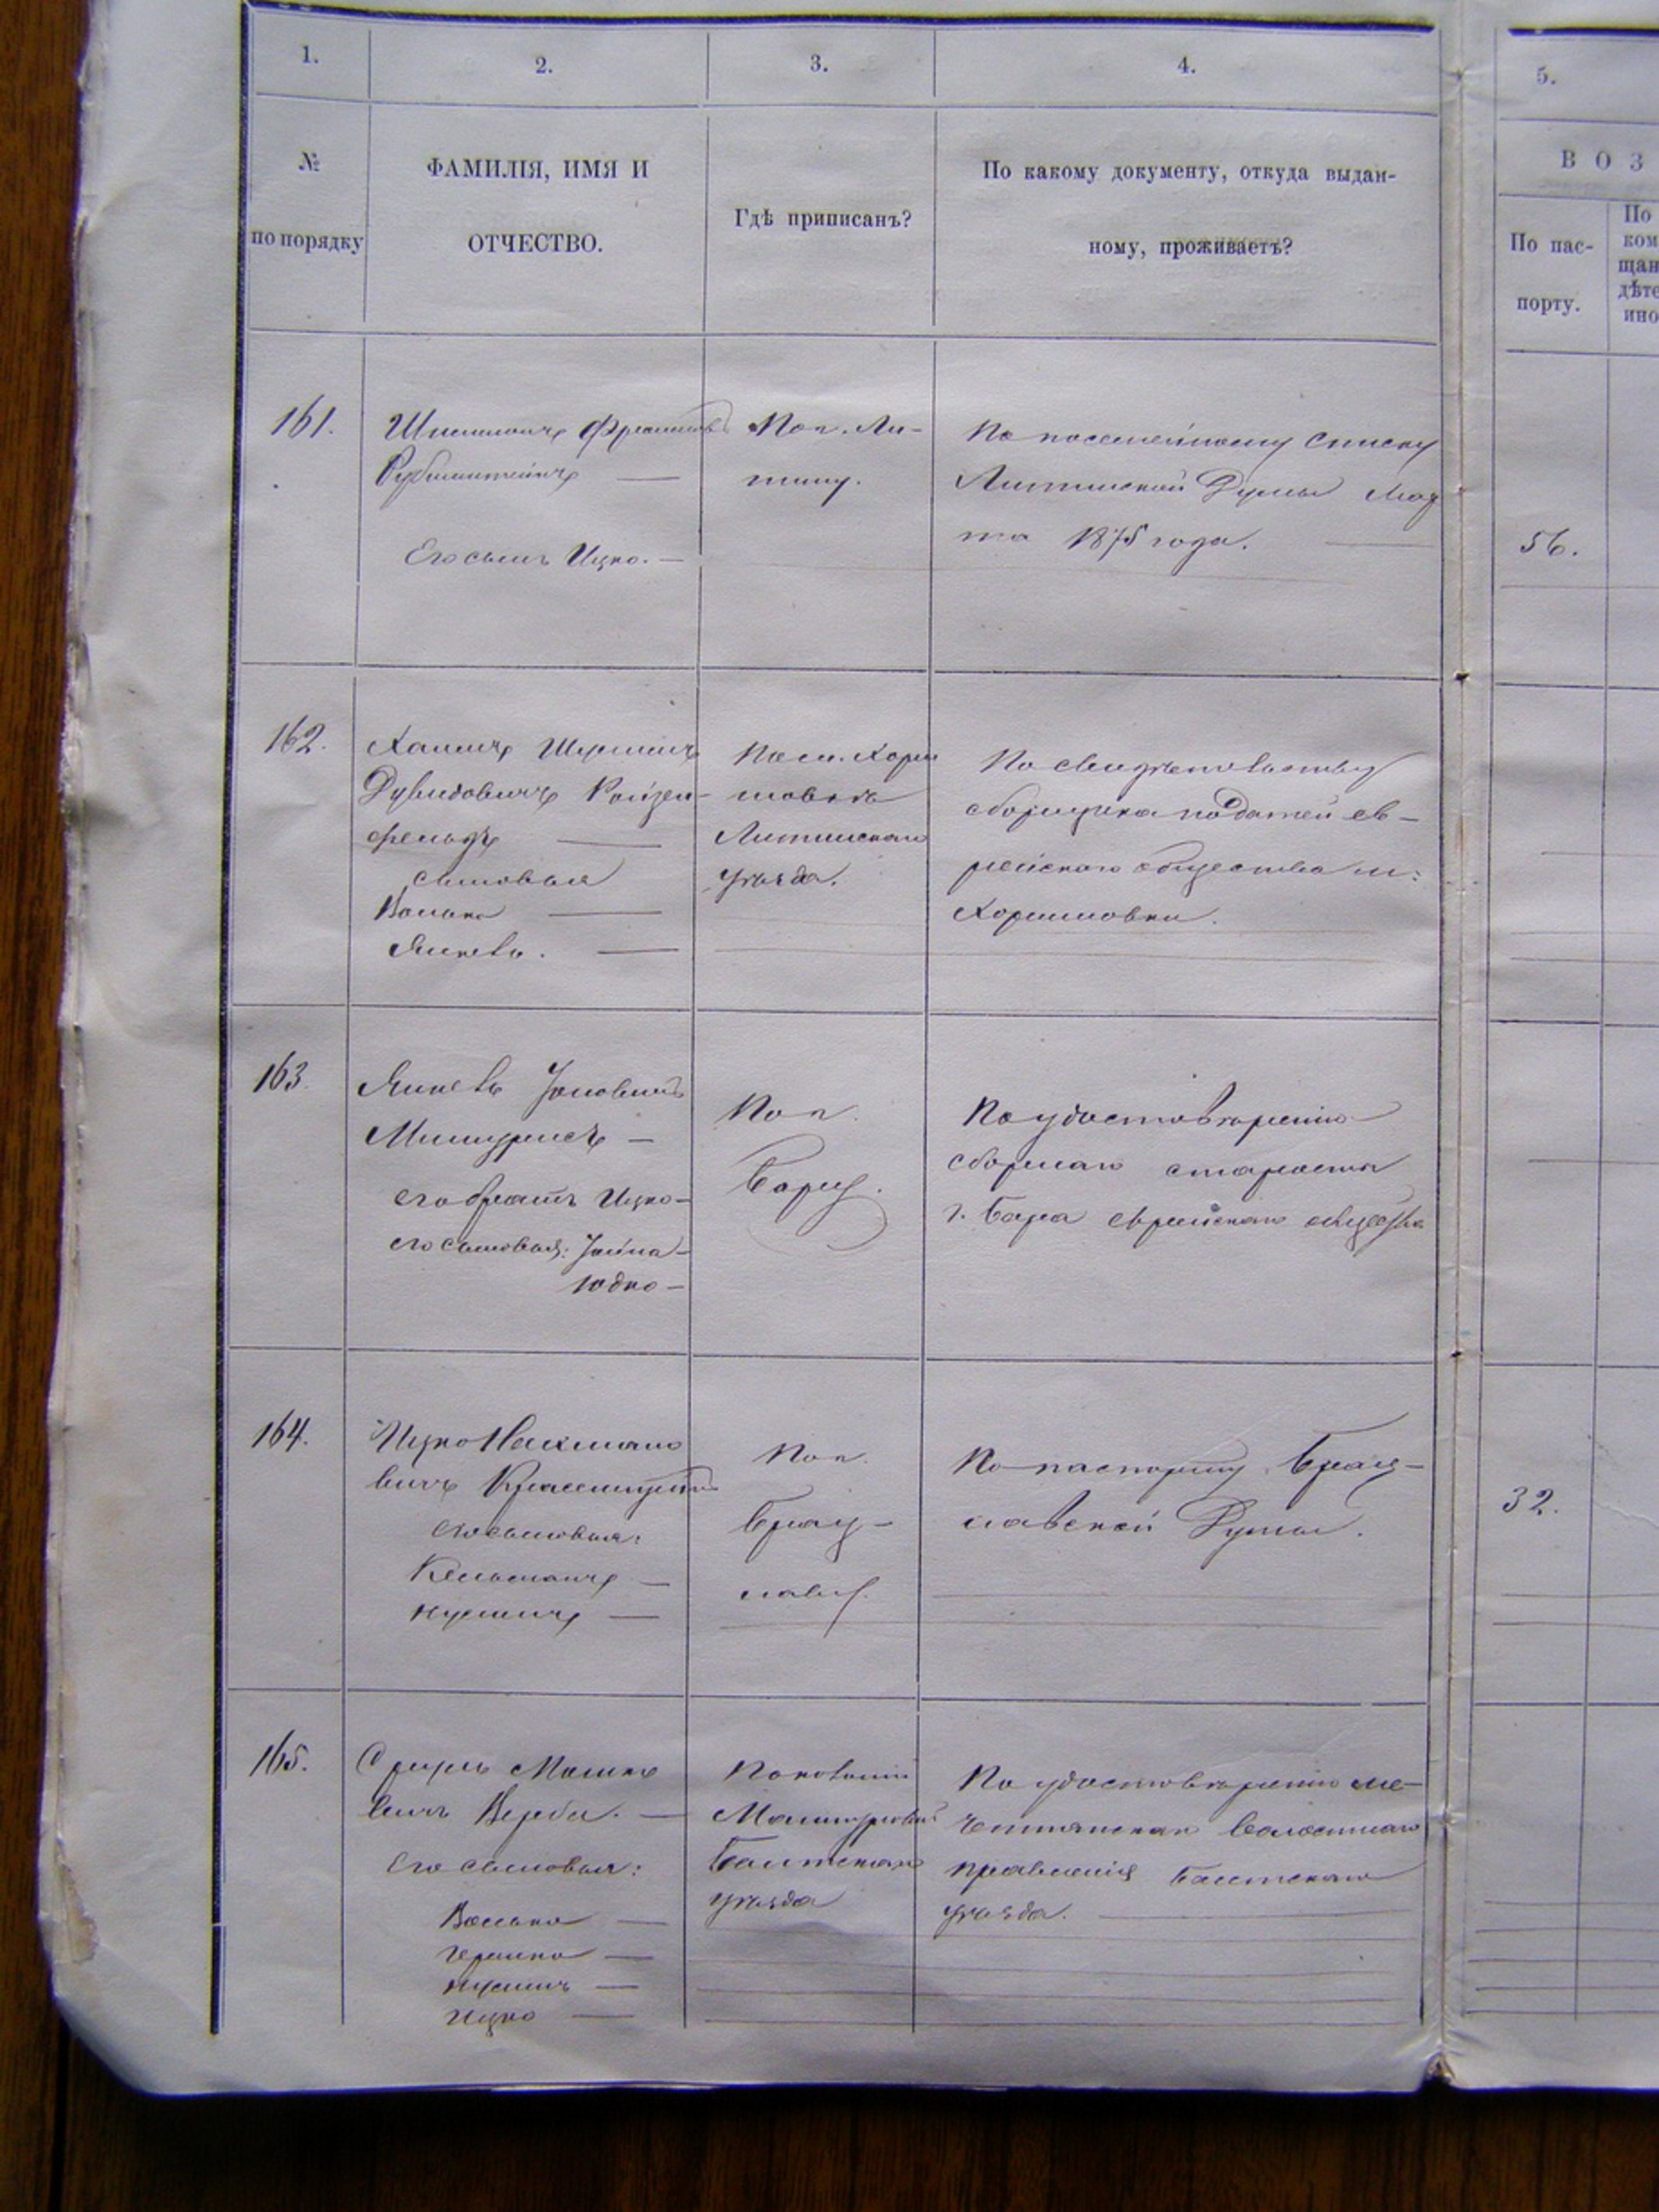 1.
2.
3.
4.
5.
№
по порядку
ФАМИЛІЯ, ИМЯ И
ОТЧЕСТВО.
Гдѣ приписанъ?
По какому документу, откуда выдан-
ному, проживаетъ?
ВОЗ
По пас-
порту.
По
ком
щан
дѣте
ино
161.
Рубинштейнъ —
Его сынъ Ицко. —
По г. Ли-
тину.
По посемейному списку
Литинской Думы Мар
та 1875 года. —
56.
162.
Хаимъ Шулимъ
Дувидовичъ Ройзен-
фельдъ —
сыновья
Волько —
Янкевъ. —
По м. Хорм
Литинскаго
уѣзда.
По свидѣтельству
сборщика податей ев-
рейского общества м:
163.
Янкевъ
его братъ Ицко -
его сыновья:
Юдко -
По г.
Бару.
По удостовѣренію
сборнаго старосты
г. Бара еврейскаго общества
164.
Ицко Нахмано
вичъ
его сыновья:
Кельманъ —
Нусинъ —
По г.
Брац-
лаву.
По паспорту Брац-
лавской Думы.
32.
165.
Сруль Мошко
вичъ Верба. —
Его сыновья:
Волько —
Гершко —
Нусинъ —
Ицко —
По колоніи
Балтскаго
уѣзда
По удостовѣренію
волостнаго
правленія Балтскаго
уѣзда. —